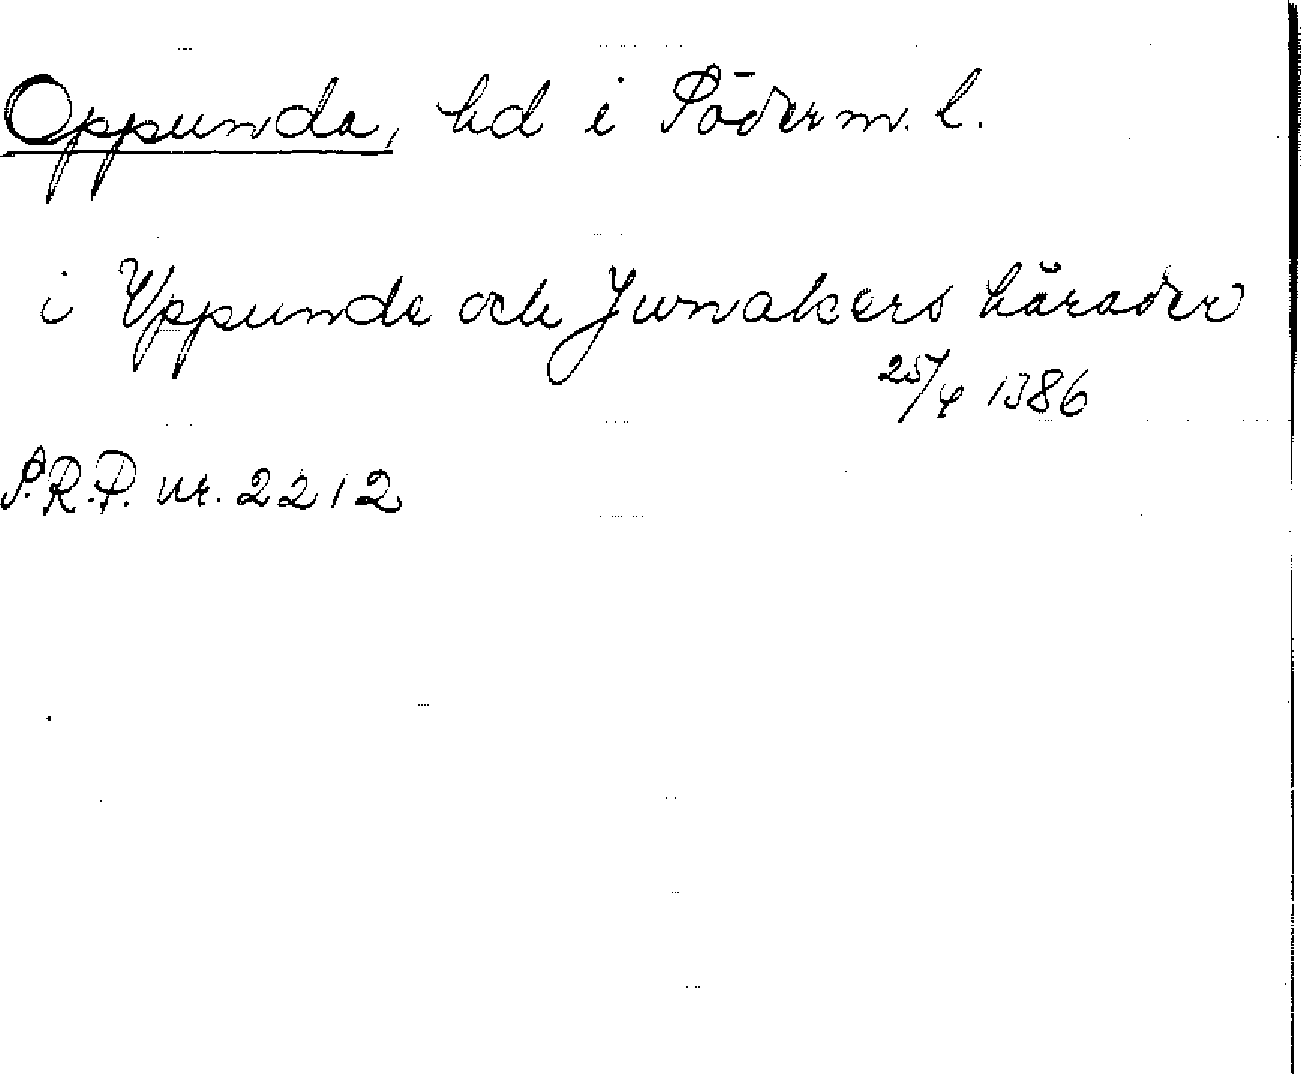 Oppunda, hd i Söderm. l.
i Uppunda och Junakers härader
25/4 1386
S.R.P. nr. 2212